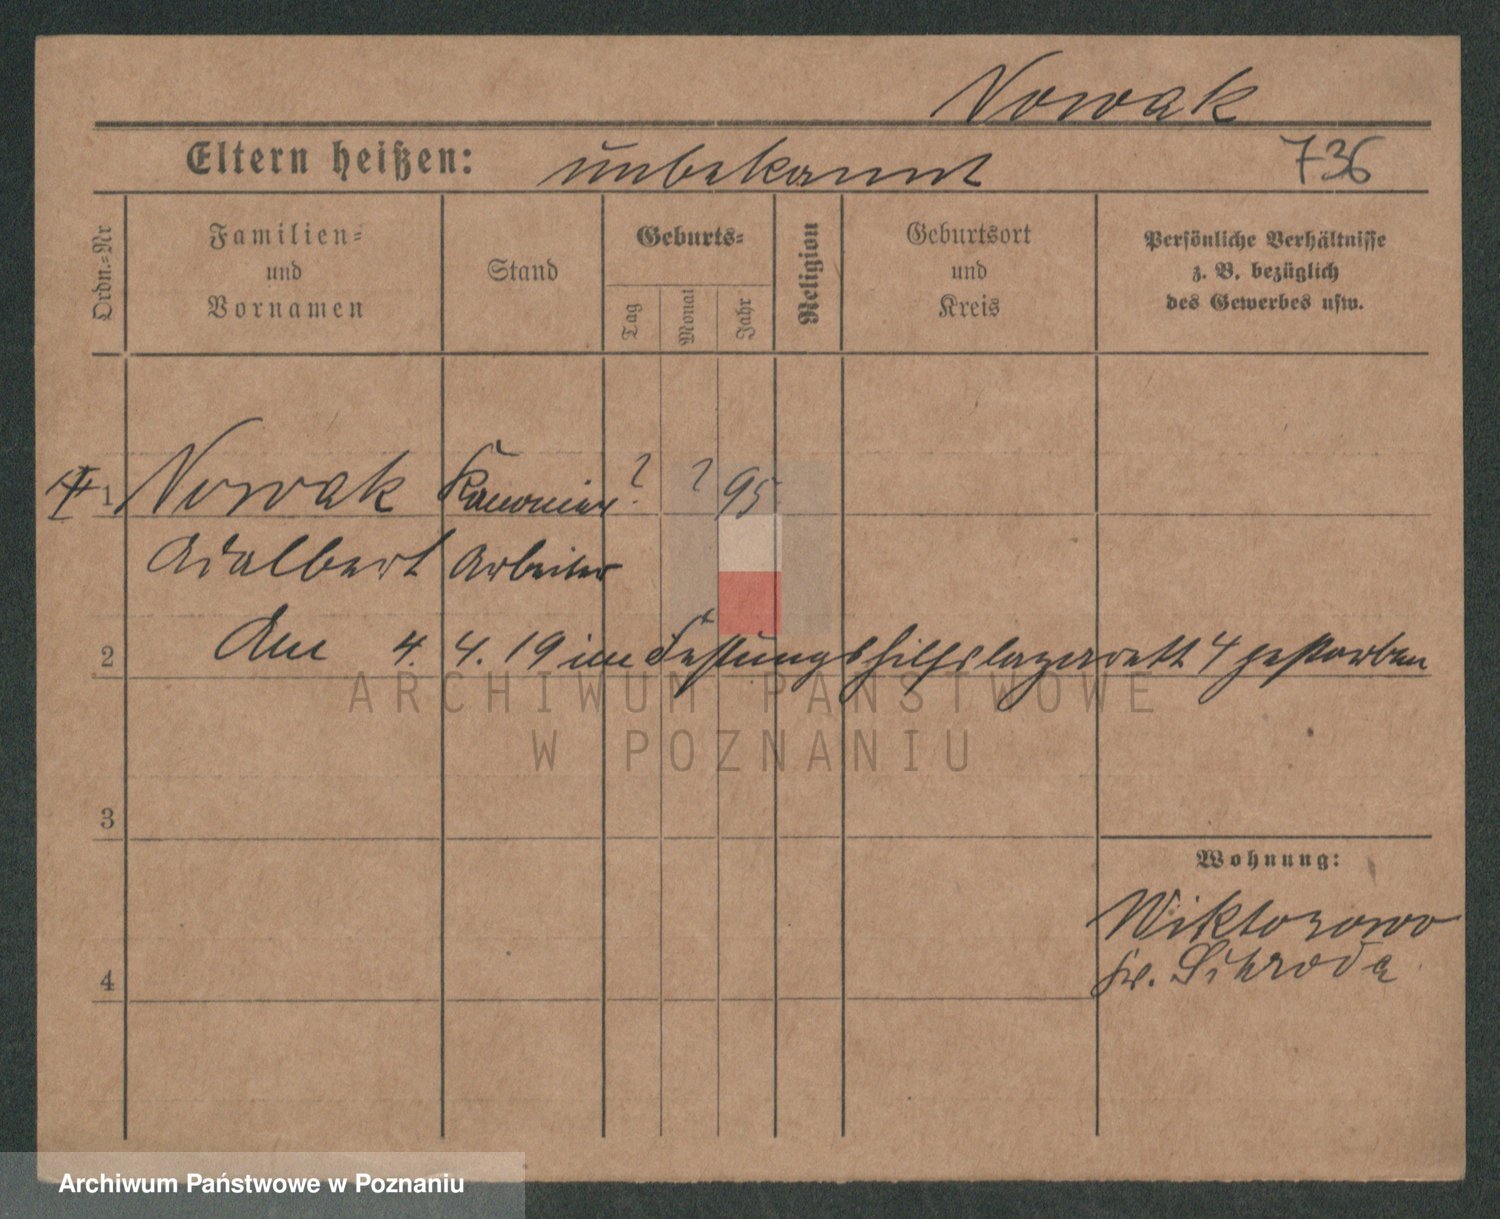 Nowak
Eltern heißen: unbekannt 736
Ordn.-Nr
Familien-
und
Vornamen
Stand
Geburts-
Tag
Monat
Jahr
Religion
Geburtsort
und
Kreis
Persönliche Verhältnisse
z. B. bezüglich
des Gewerbes usw.
1 Nowak Kanonier ? ? 95
Adalbert Arbeiter
2 Am 4. 4. 19 im Festungshilfslazarett 4 gestorben
ARCHIWUM PAŃSTWOWE
W POZNANIU
3
Wohnung:
Wiktorowo
Kr. Schroda
4
Archiwum Państwowe w Poznaniu